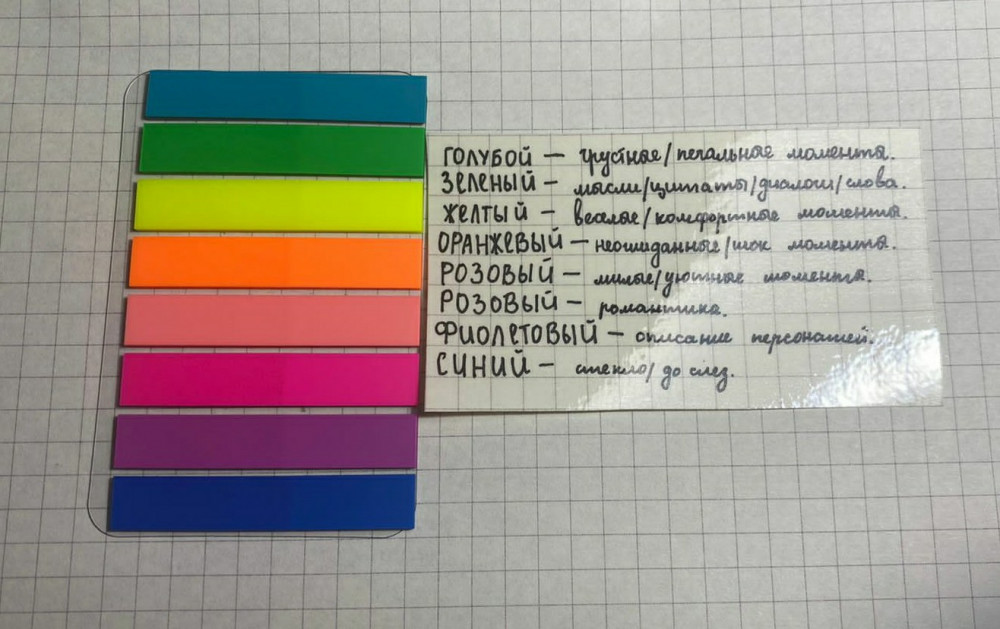 ГОЛУБОЙ — грустные/печальные моменты.
ЗЕЛЕНЫЙ — мысли/цитаты/диалоги/слова.
ЖЕЛТЫЙ — веселые/комфортные моменты.
ОРАНЖЕВЫЙ — неожиданные/шок моменты.
РОЗОВЫЙ — милые/уютные моменты.
РОЗОВЫЙ — романтика.
ФИОЛЕТОВЫЙ — описание персонажей.
СИНИЙ — стекло/ до слез.